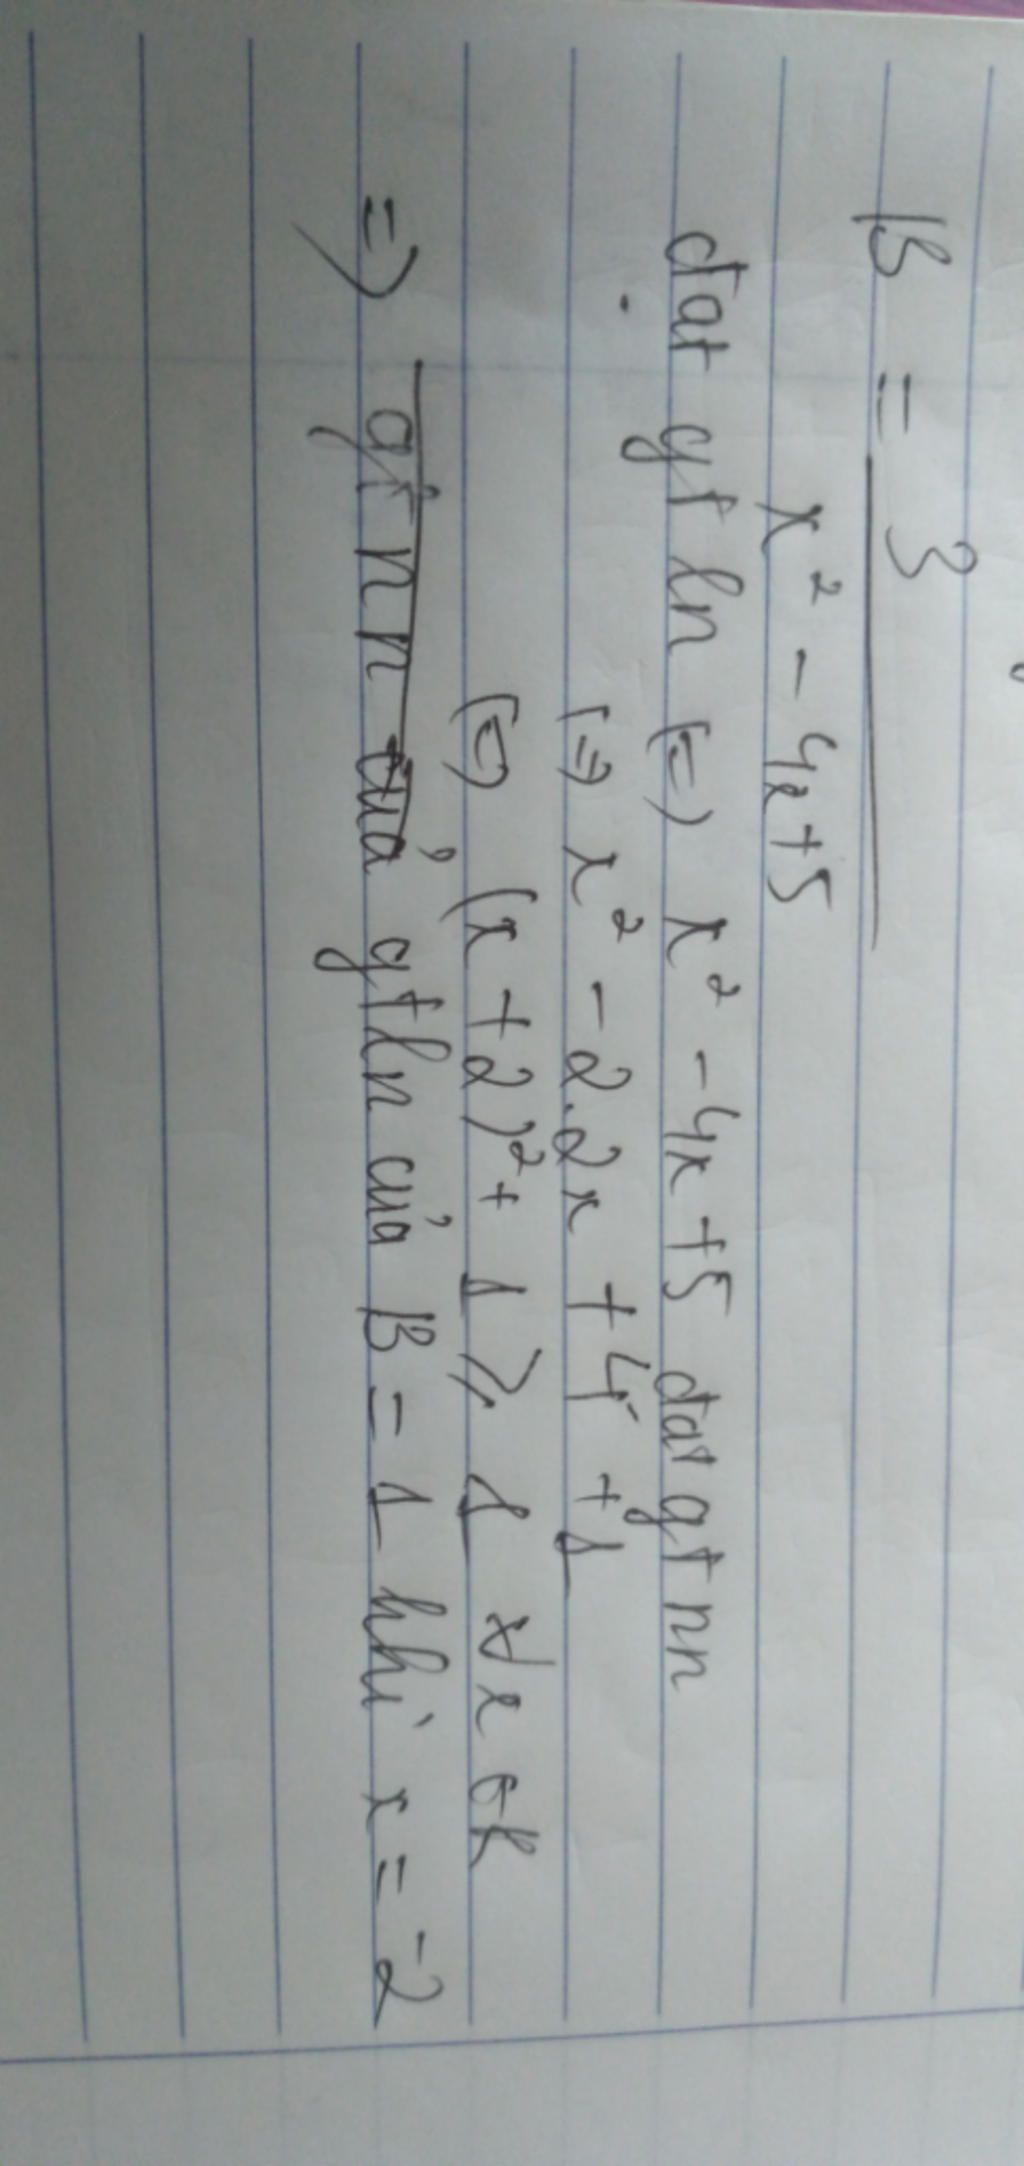 B = 3
x² - 4x + 5
đạt gtln (=) x² - 4x + 5 đạt gtnn
(=) x² - 2.2x + 4 + 1
(=) (x + 2)² + 1 ⩾ 1 ∀x ∈ R
=) gtnn của gtln của B = 1 khi x = -2